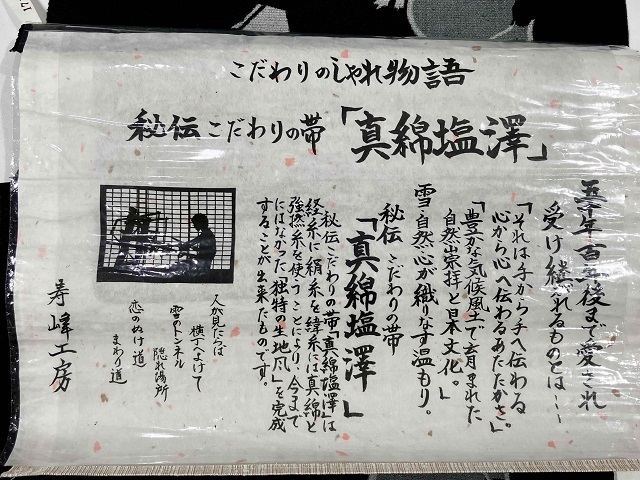 こだわりのしゃれ物語
秘伝こだわりの帯「真綿塩澤」
五十年百年後まで愛され
受け継がれるものとは…
「それは手から手へ伝わる
心から心へ伝わるあたたかさ。」
「豊かな気候風土で育まれた
自然崇拝と日本文化。」
雪・自然・心が織りなす温もり。
秘伝 こだわりの帯
「真綿塩澤」
秘伝こだわりの帯「真綿塩澤」は
経糸に絹糸を緯糸には真綿と
強撚糸を使うことにより、今まで
にはなかった独特の生地風を完成
することが出来たものです。
人が見たらば
横丁へよけて
雪のトンネル
隠れ場所
恋のぬけ道
まわり道
寿峰工房